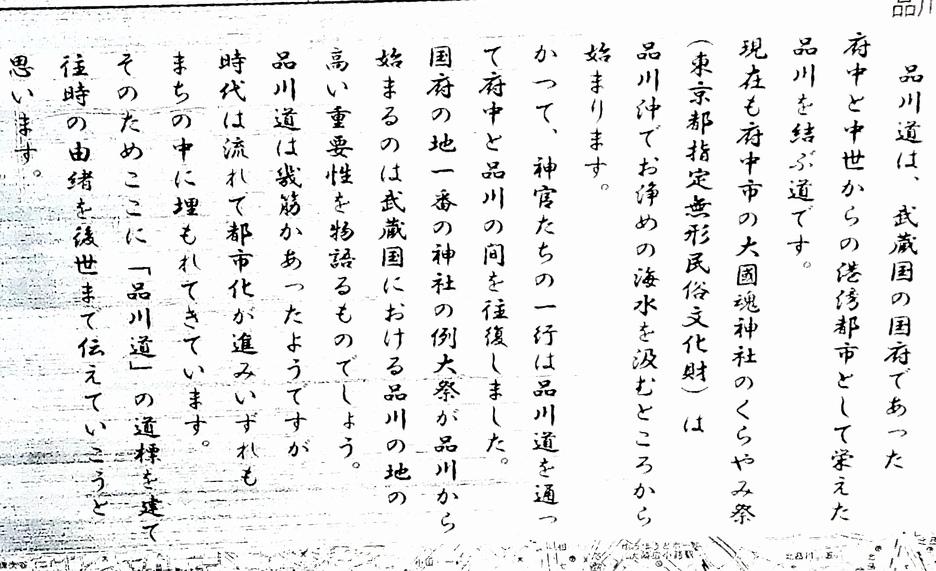 品川
品川道は、武蔵国の国府であった
府中と中世からの港湾都市として栄えた
品川を結ぶ道です。
現在も府中市の大國魂神社のくらやみ祭
(東京都指定無形民俗文化財)は
品川沖でお浄めの海水を汲むところから
始まります。
かつて、神官たちの一行は品川道を通っ
て府中と品川の間を往復しました。
国府の地一番の神社の例大祭が品川から
始まるのは武蔵国における品川の地の
高い重要性を物語るものでしょう。
品川道は幾筋かあったようですが
時代は流れて都市化が進みいずれも
まちの中に埋もれてきています。
そのためここに「品川道」の道標を建て
往時の由緒を後世まで伝えていこうと
思います。